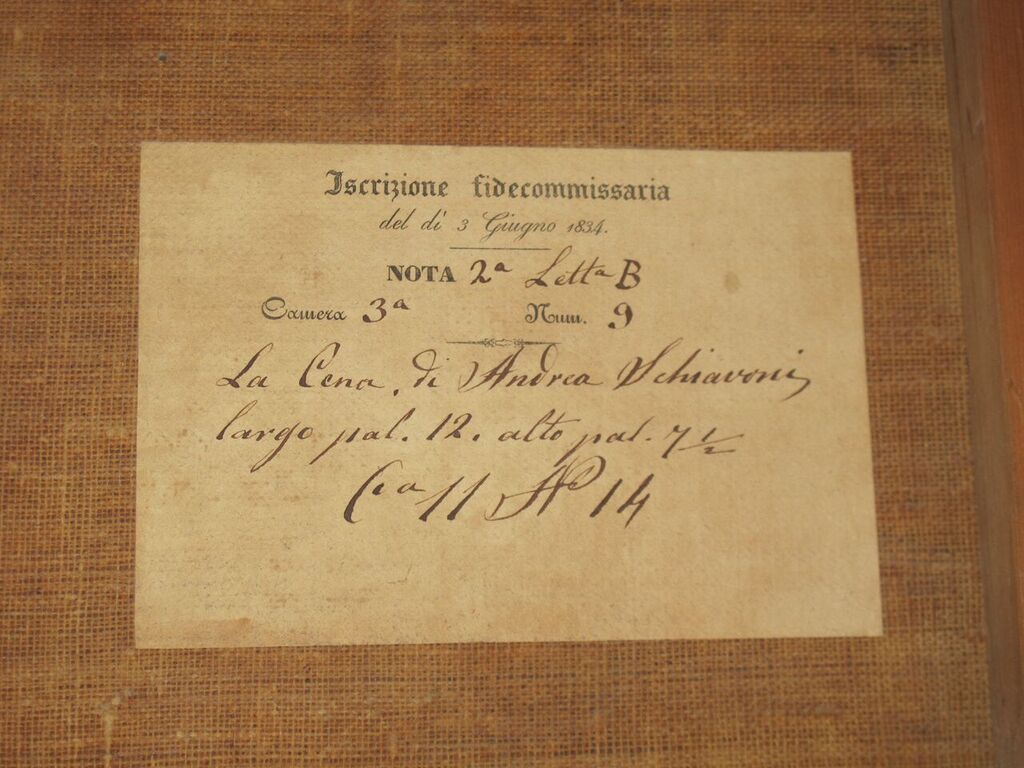 Iscrizione fidecommissaria
del di 3 Giugno 1834.
NOTA 2ª Letta B
Camera 3ª Num. 9
La Cena, di Andrea Schiavoni,
largo pal. 12. alto pal. 7 1/2
Cª 11 Nº 14